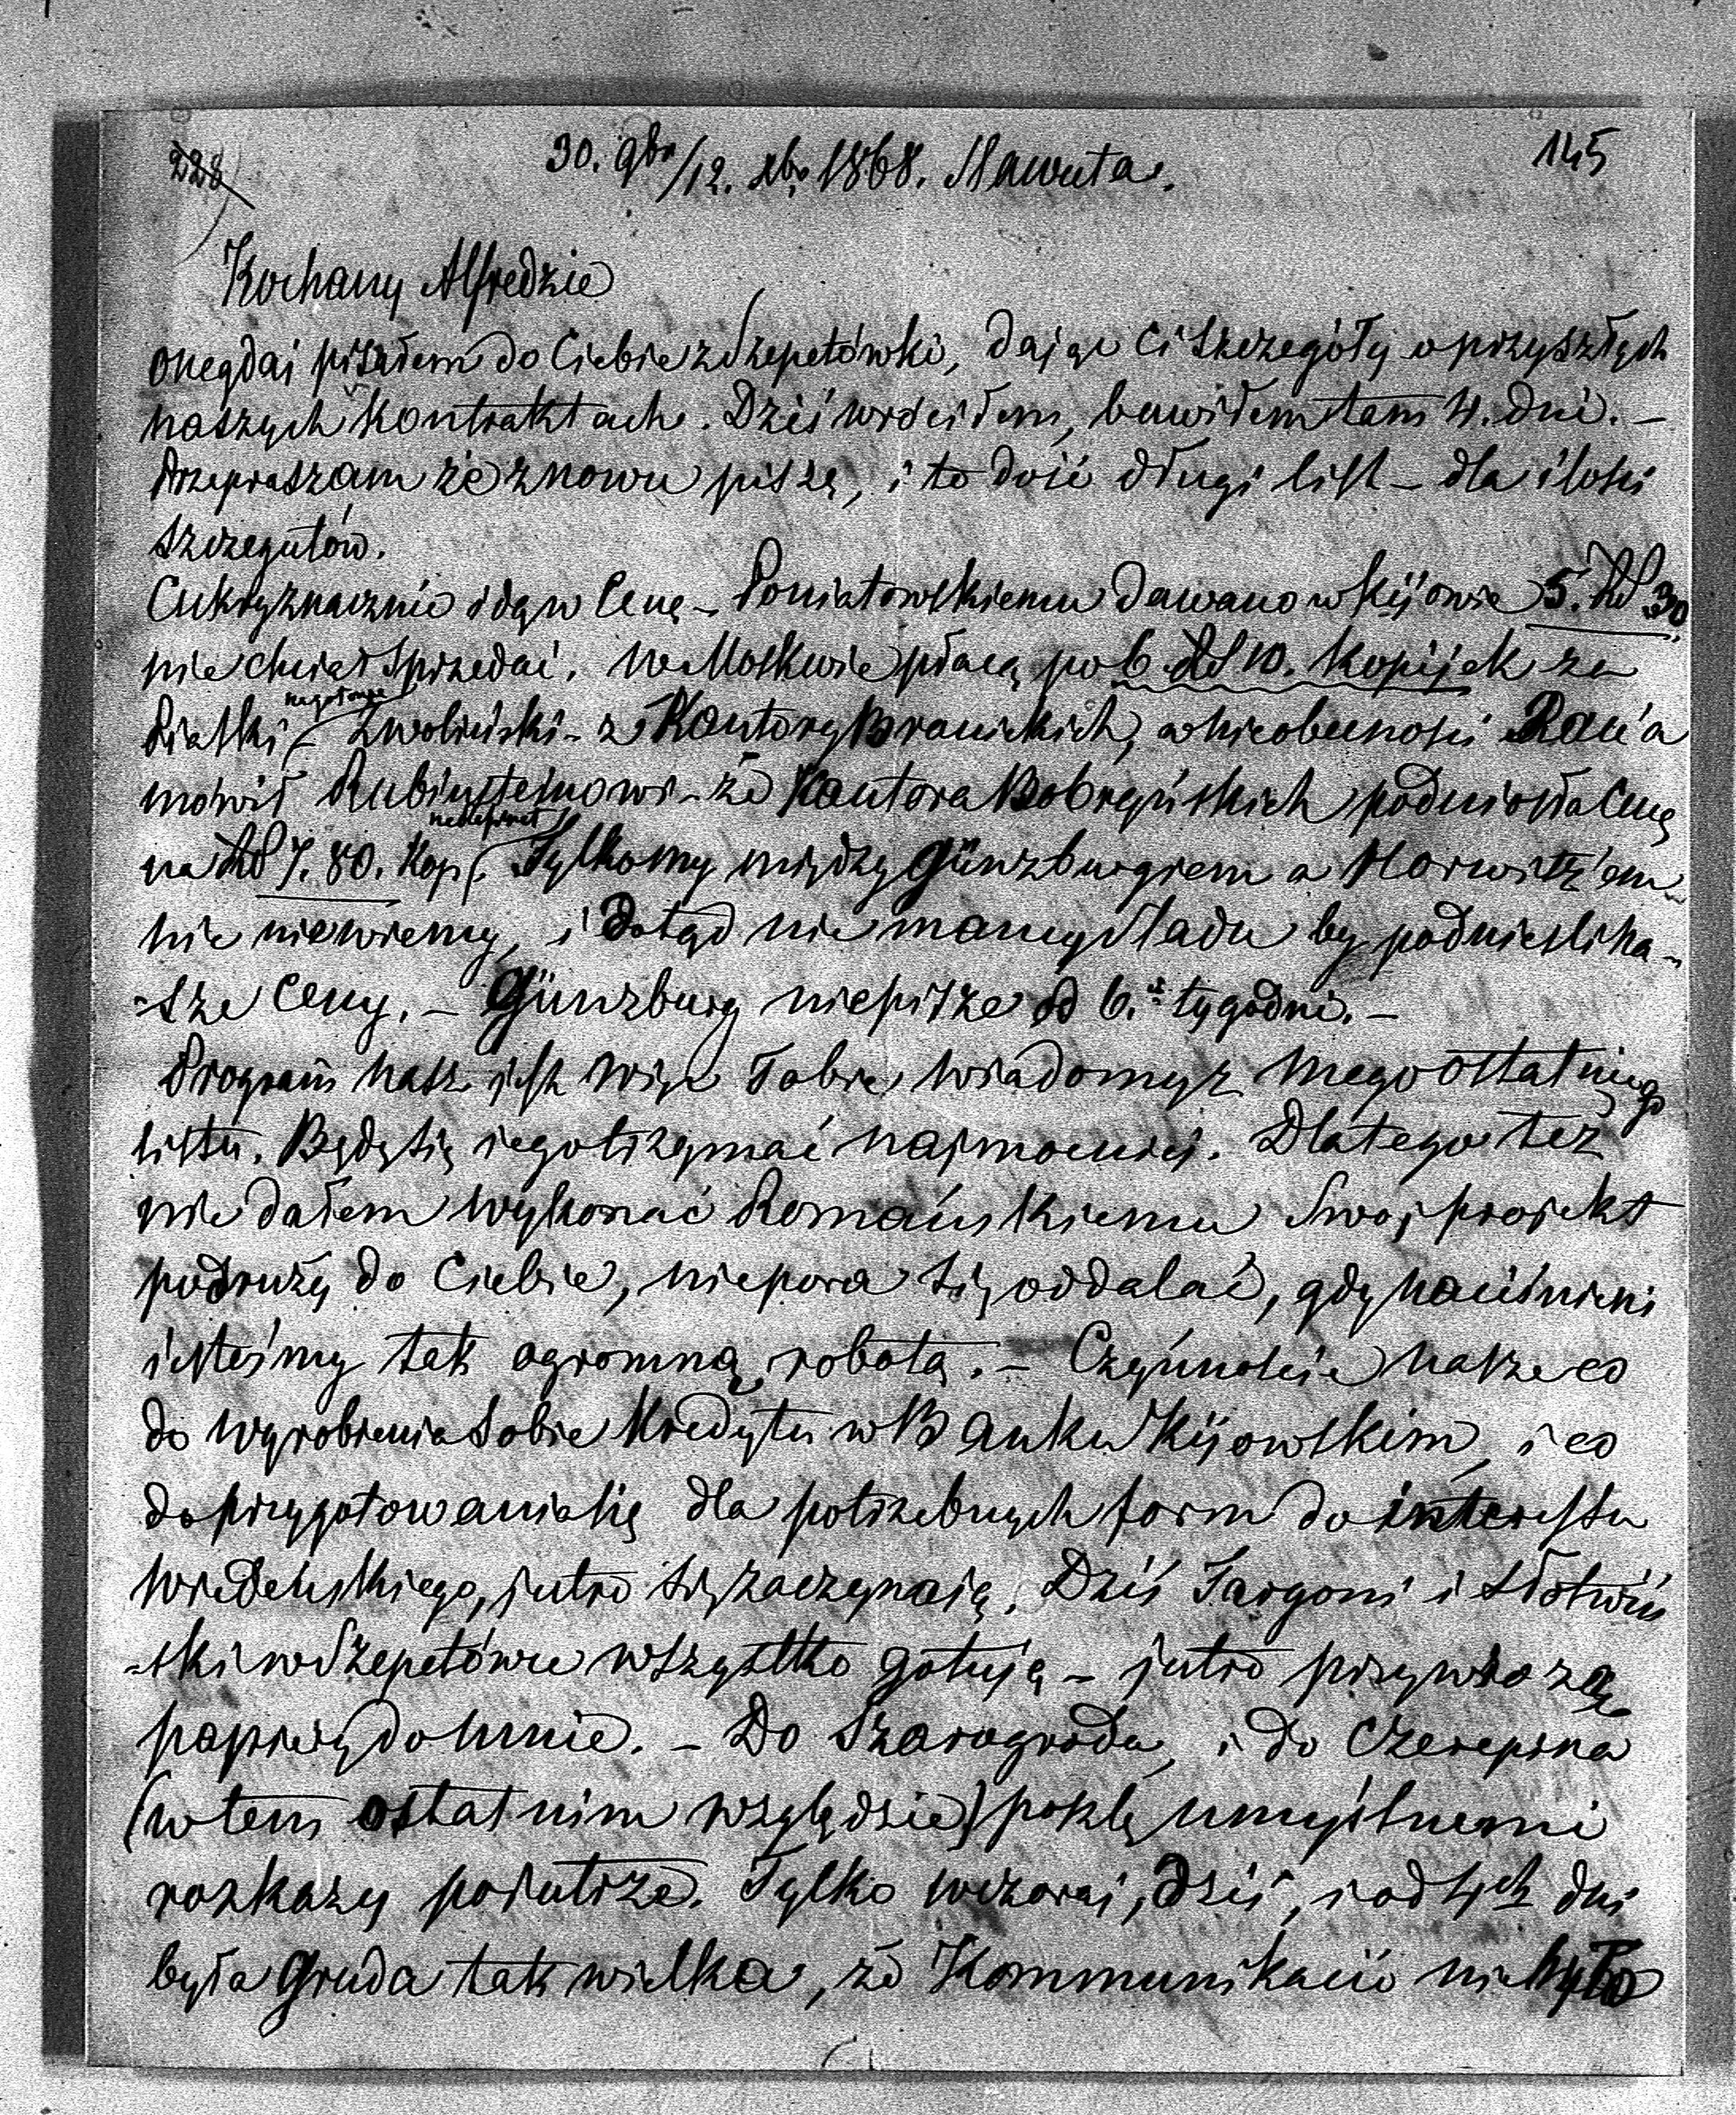 228
30. 9br/12. Xbr 1868. Sławuta.
145
Kochany Alfredzie
onegdaj pisałem do Ciebie z Szepetówki, dając Ci szczegóły o przyszłych
naszych kontraktach. Dziś wróciłem, bawiłem tam 4. dni. –
Przepraszam że znowu piszę, i to dość długi list – dla ilości
szczegułów.
Cukry znacznie idą w Cenę – Poniatowskiemu dawano w Kijowie 5. Rs 30.
nie chciał sprzedać. W Moskwie płacą po 6 Rs 10. kopijek za
Piaski – Zwoliński – z Kantory Branickich, w nieobecności Rau'a
mówił Rubinsteinowi – że Kantora Bobryńskich podniosła Cenę
na Rs 7. 80. Kop. Tylko my między Günzburgiem a Horwitz'em
nic niewiemy, i dotąd nie mamy śladu by podnieśli na-
-sze Ceny. – Günzburg niepisze od 6. tygodni. –
Program nasz jest więc Tobie wiadomy z mego ostatniego
listu. Będę się iego trzymać najmocniej. Dlatego też
nie dałem wykonać Romańskiemu Swój projekt
podruży do Ciebie, niepora się oddalać, gdy naciśnieni
iesteśmy tak ogromną robotą. – Czynności nasze co
do wyrobienia sobie Kredytu w Banku Kijowskim, i co
do przygotowania się dla potrzebnych form do interessu
Wiedeńskiego, jutro się zaczynaią. Dziś Targoni i Słotwiń
-ski w Szepetówce wszystko gotują – jutro przywiozą
papiery do mnie. – Do Szarogroda, i do Czerepina
(w tem ostatnim względzie) poszlę umyślnemi
rozkazy poiutrze. Tylko wczoraj, dziś, i od 4ch dni
była Gruda tak wielka, że Kommunikacii nie było